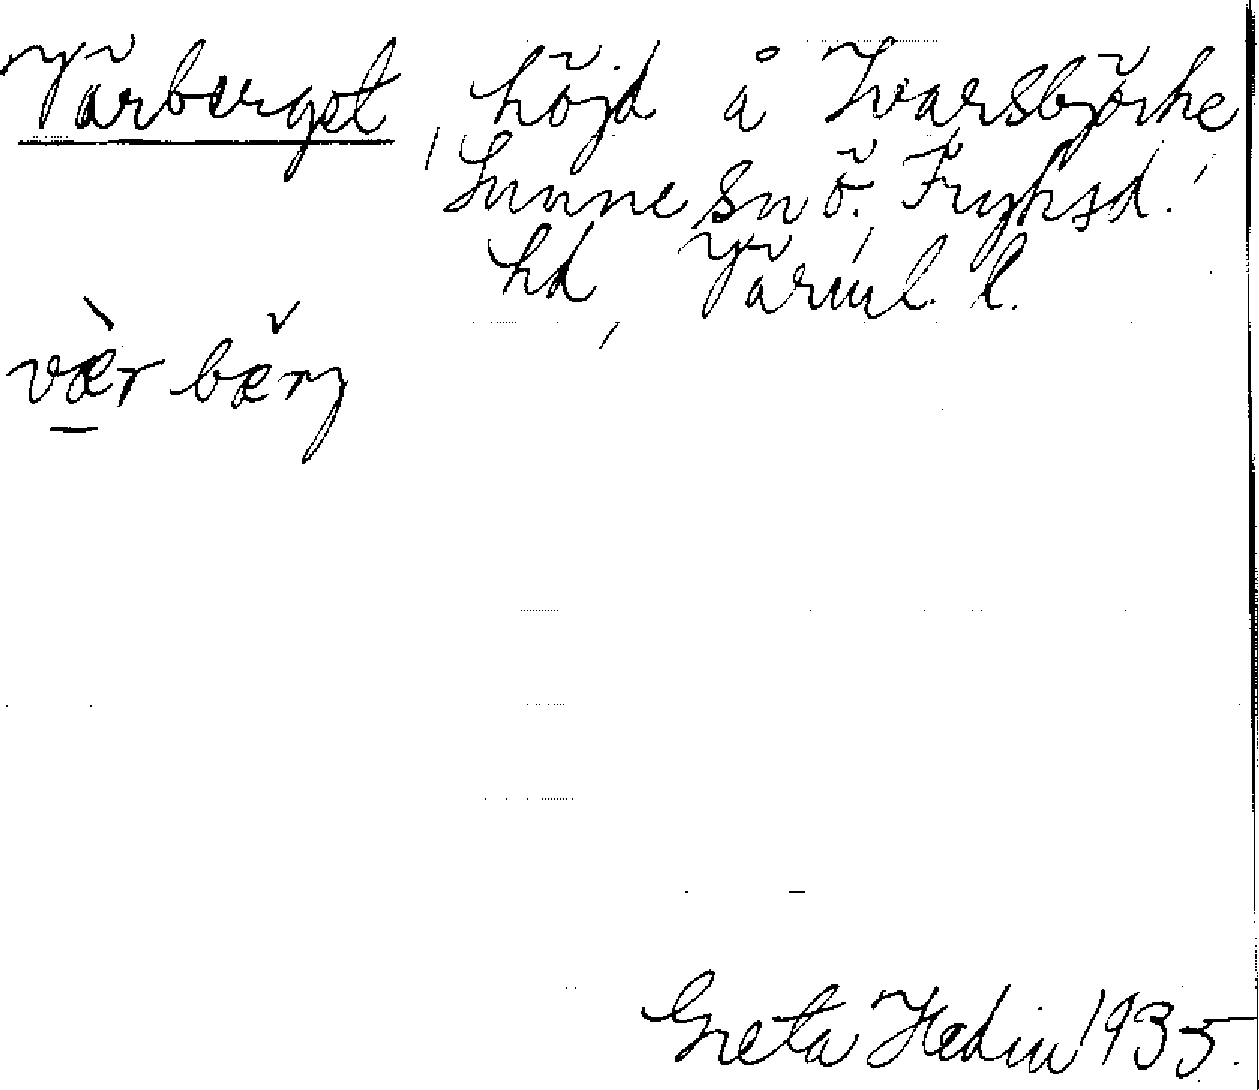 Värberget, höjd å Ivarsbjörke,
Sunne sn Ö. Fryksd.
hd, Värml. l.
vær bærj
Greta Hedin 1935.